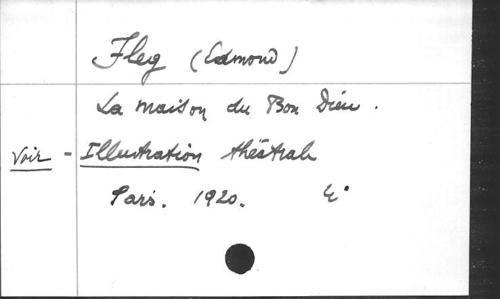 Fleg (Edmond)
La maison du Bon Dieu.
Voir - Illustration théâtrale
Paris. 1920. 4°